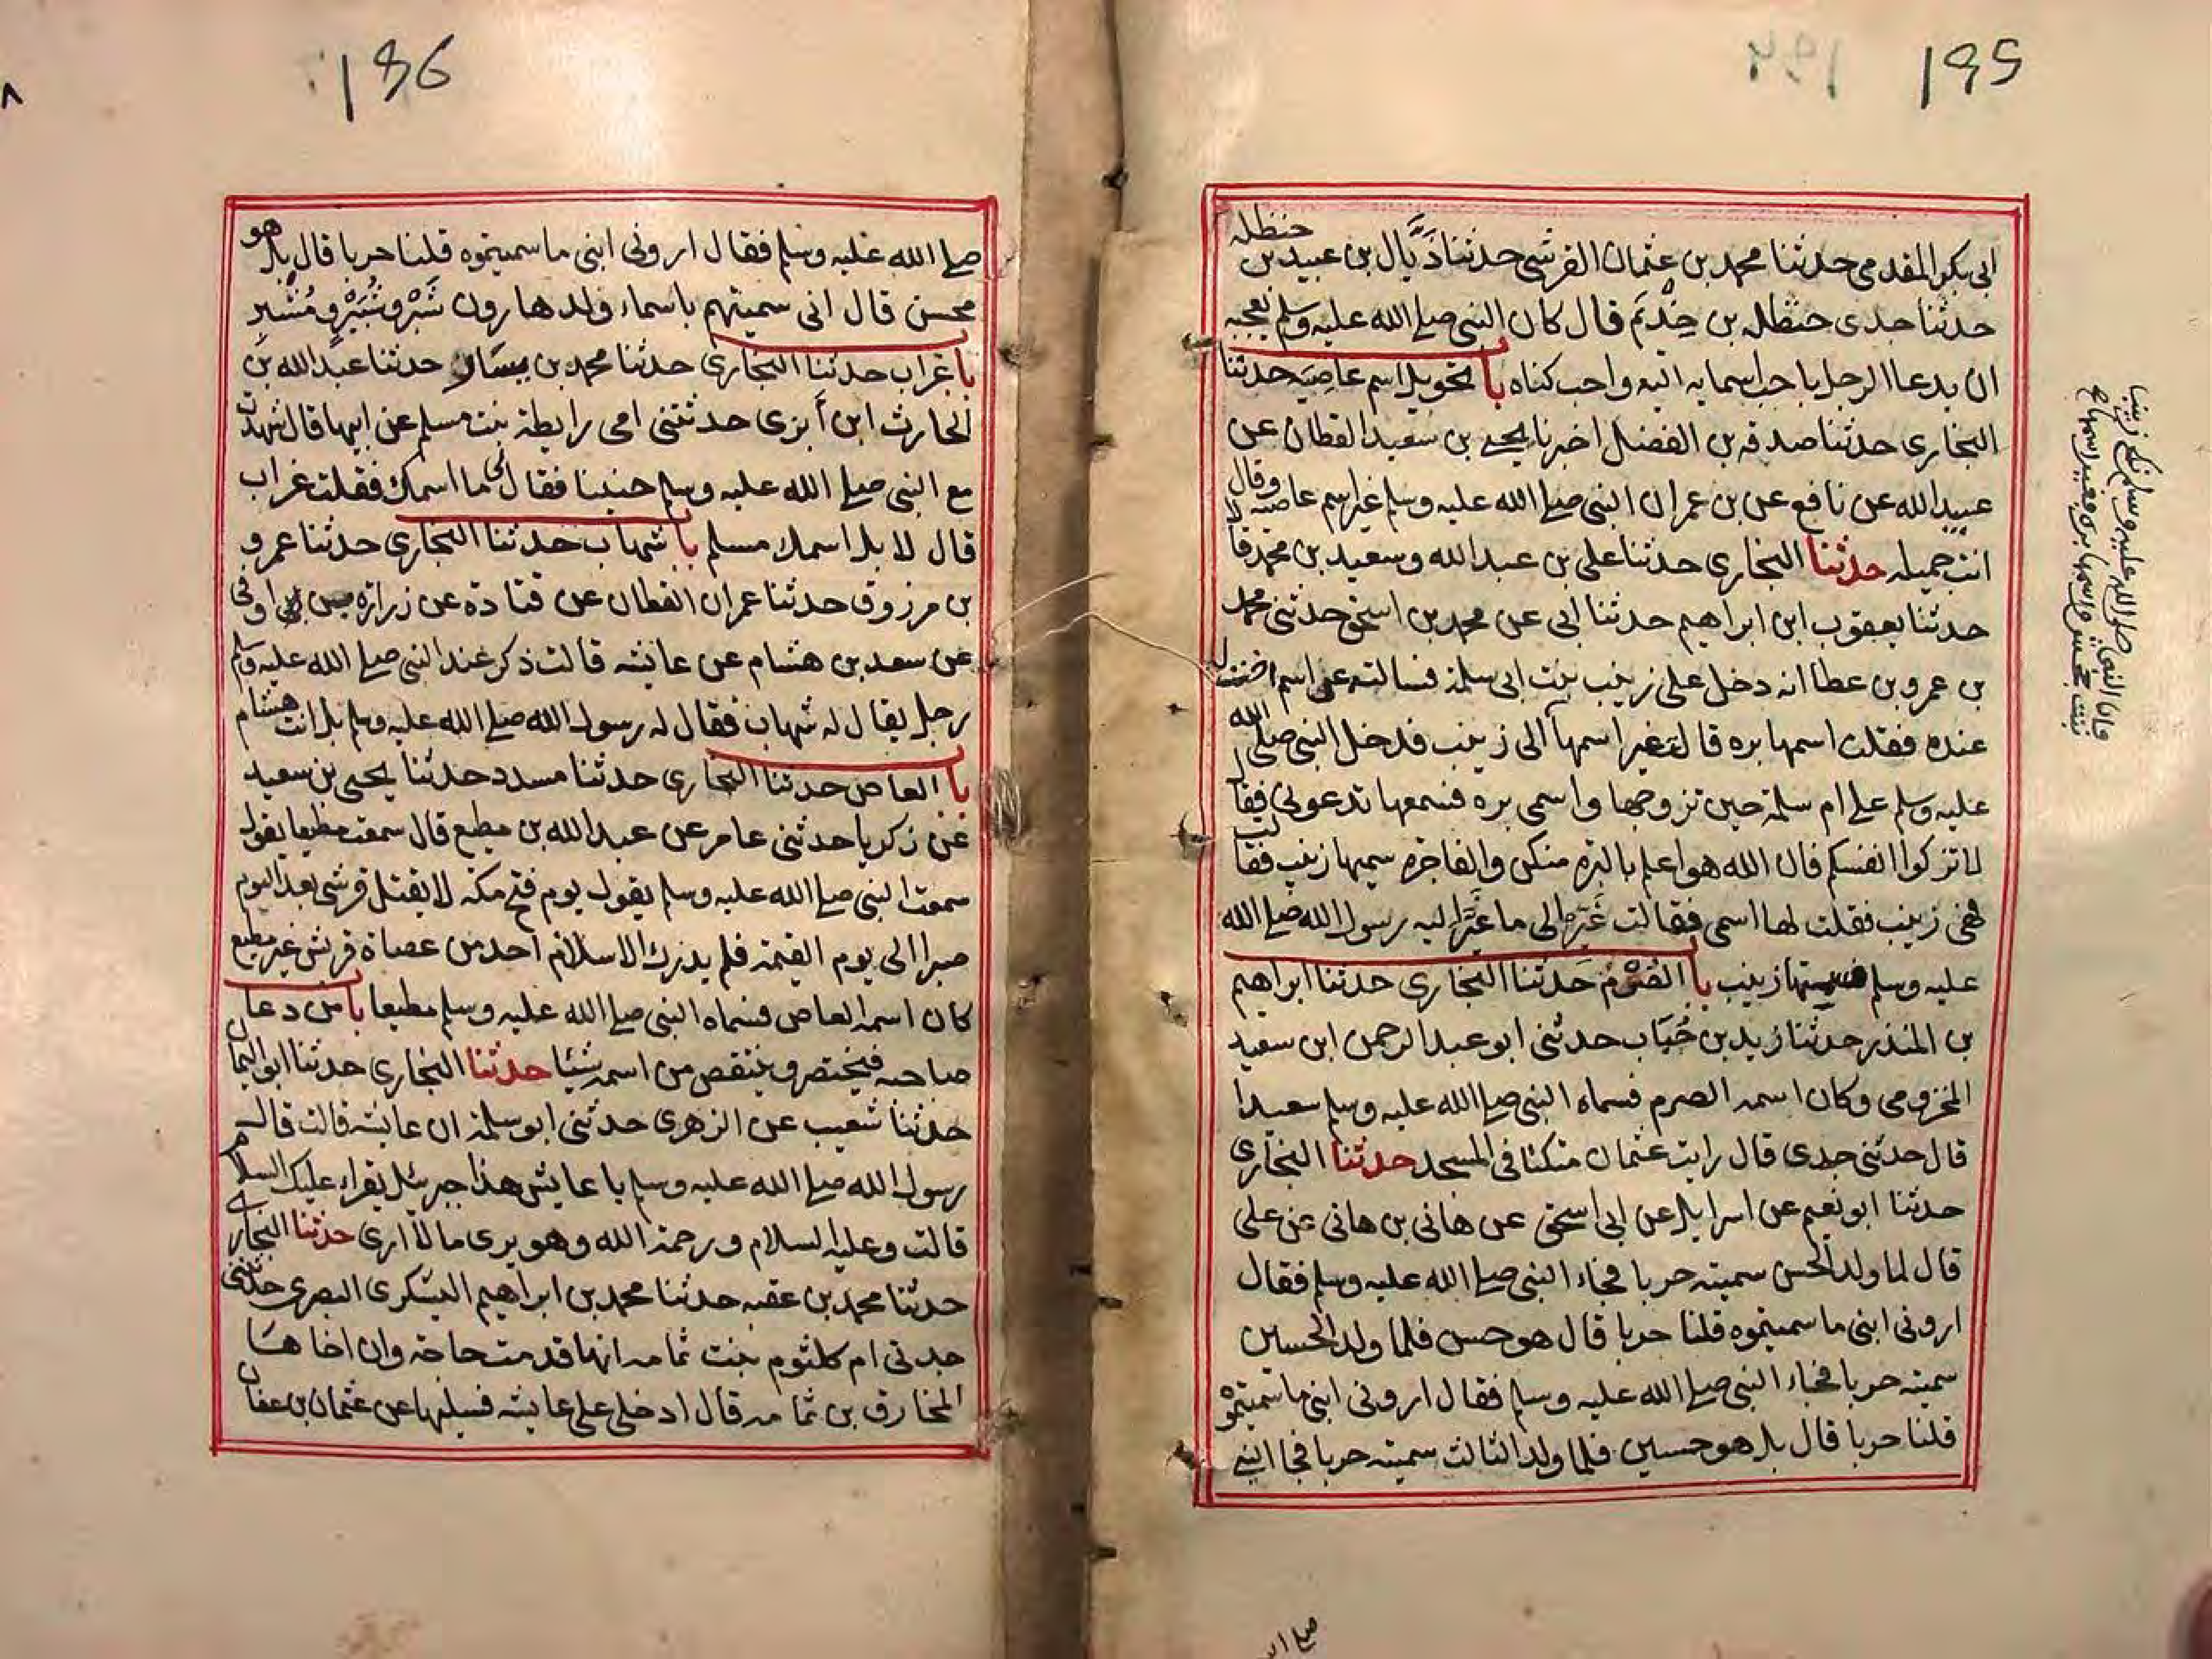 195
ابى بكر المقدمى حدثنا محمد بن عثمان القرشى حدثنا ذَيَّال بن عبيد بن حنظله
حدثنا جدى حنظله بن حِذْيَم قال كان النبى صلى الله عليه وسلم يعجبه
ان يدعا الرجل باحب اسمايه اليه واحب كناه با تحويل اسم عاصيه حدثنا
البخارى حدثنا صدقه بن الفضل اخبرنا يحيى بن سعيد القطان عن
عبيد الله عن نافع عن بن عمر ان النبى صلى الله عليه وسلم غير اسم عاصيه وقال
انت جميله حدثنا البخارى حدثنا على بن عبد الله وسعيد بن محمد قا لا
حدثنا يعقوب ابن ابراهيم حدثنا ابى عن محمد بن اسحق حدثنى محمد
بن عمرو بن عطا انه دخل على زينب بنت ابى سلمة فسالته عن اسم اخت ل
عنده فقلت اسمها بره قالت غير اسمها الى زينب فدخل النبى صلى الله
عليه وسلم على ام سلمة حين تزوجها واسمى بره فسمعها تدعونى فقا ل
لا تزكوا انفسكم فان الله هو اعلم بالبره منكن والفاجره سميها زينب فقا لت
فهى زينب فقلت لها اسمى فقالت غَيّر الى ما غَيَّر اليه رسول الله صلى الله
عليه وسلم فسميتها زينب با الصُّرْم حدثنا البخارى حدثنا ابراهيم
بن المنذر حدثنا زيد بن حُبَاب حدثنى ابو عبد الرحمن ابن سعيد
المخزومى وكان اسمه الصرم فسماه النبى صلى الله عليه وسلم سعيدا
قال حدثنى جدى قال رايت عثمان متكئا فى المسجد حدثنا البخارى
حدثنا ابو نعيم عن اسرايل عن ابى اسحق عن هانى بن هانى عن على
قال لما ولد الحسن سميته حربا فجاء النبى صلى الله عليه وسلم فقال
ارونى ابنى ما سميتموه قلنا حربا قال هو حسن فلما ولد الحسين
سميته حربا فجاء النبى صلى الله عليه وسلم فقال ارونى ابنى ما سميتموه
قلنا حربا قال بل هو حسين فلما ولد الثالث سميته حربا فجا النبى
نكح زينب
بنت جحش واسمها بره
196
صلى الله عليه وسلم فقال ارونى ابنى ما سميتموه قلنا حربا قال بل هو
محسن قال انى سميتهم باسماء ولد هارون شَبَّر وشَبِيْر ومُشَبِّر
با غراب حدثنا البخارى حدثنا محمد بن حدثنا عبد الله بن
الحارث ابن أبزى حدثتنى امى رايطة بنت مسلم عن ابيها قال شهدت
مع النبى صلى الله عليه وسلم حنينا فقال لى ما اسمك فقلت غراب
قال لا بل اسمك مسلم با شهاب حدثنا البخارى حدثنا عمرو
بن مرزوق حدثنا عمران القطان عن قتادة عن زراره بن اوفى
عن سعد بن هشام عن عايشه قالت ذكر عند النبى صلى الله عليه وسلم
رجل يقال له شهاب فقال له رسول الله صلى الله عليه وسلم بل انت هشام
با العاص حدثنا البخارى حدثنا مسدد حدثنا يحيى بن سعيد
عن زكريا حدثنى عامر عن عبد الله بن مطيع قال سمعت مطيعا يقول
سمعت النبى صلى الله عليه وسلم يقول يوم فتح مكة لا يقتل قرشى بعد اليوم
صبرا الى يوم القيمة فلم يدرك الاسلام احد من عصاة قريش غير مطيع
كان اسمه العاص فسماه النبى صلى الله عليه وسلم مطيعا با من دعا
صاحبه فيختصر وينتقص من اسمه شيئا حدثنا البخارى حدثنا ابو اليمان
حدثنا شعيب عن الزهرى حدثنى ابو سلمة ان عايشه قالت قال
رسول الله صلى الله عليه وسلم يا عايش هذا جبرئل يقراء عليك السلام
قالت وعليه السلام ورحمة الله وهو يرى ما لا ارى حدثنا البخارى
حدثنا محمد بن عقبه حدثنا محمد بن ابراهيم اليشكرى البصرى حدثتنى
جدتى ام كلثوم بنت ثمامه انها قدمت حاجة وان اخاها
المخارق بن ثمامه قال ادخلى على عايشه فسليها عن عثمان بن عفان